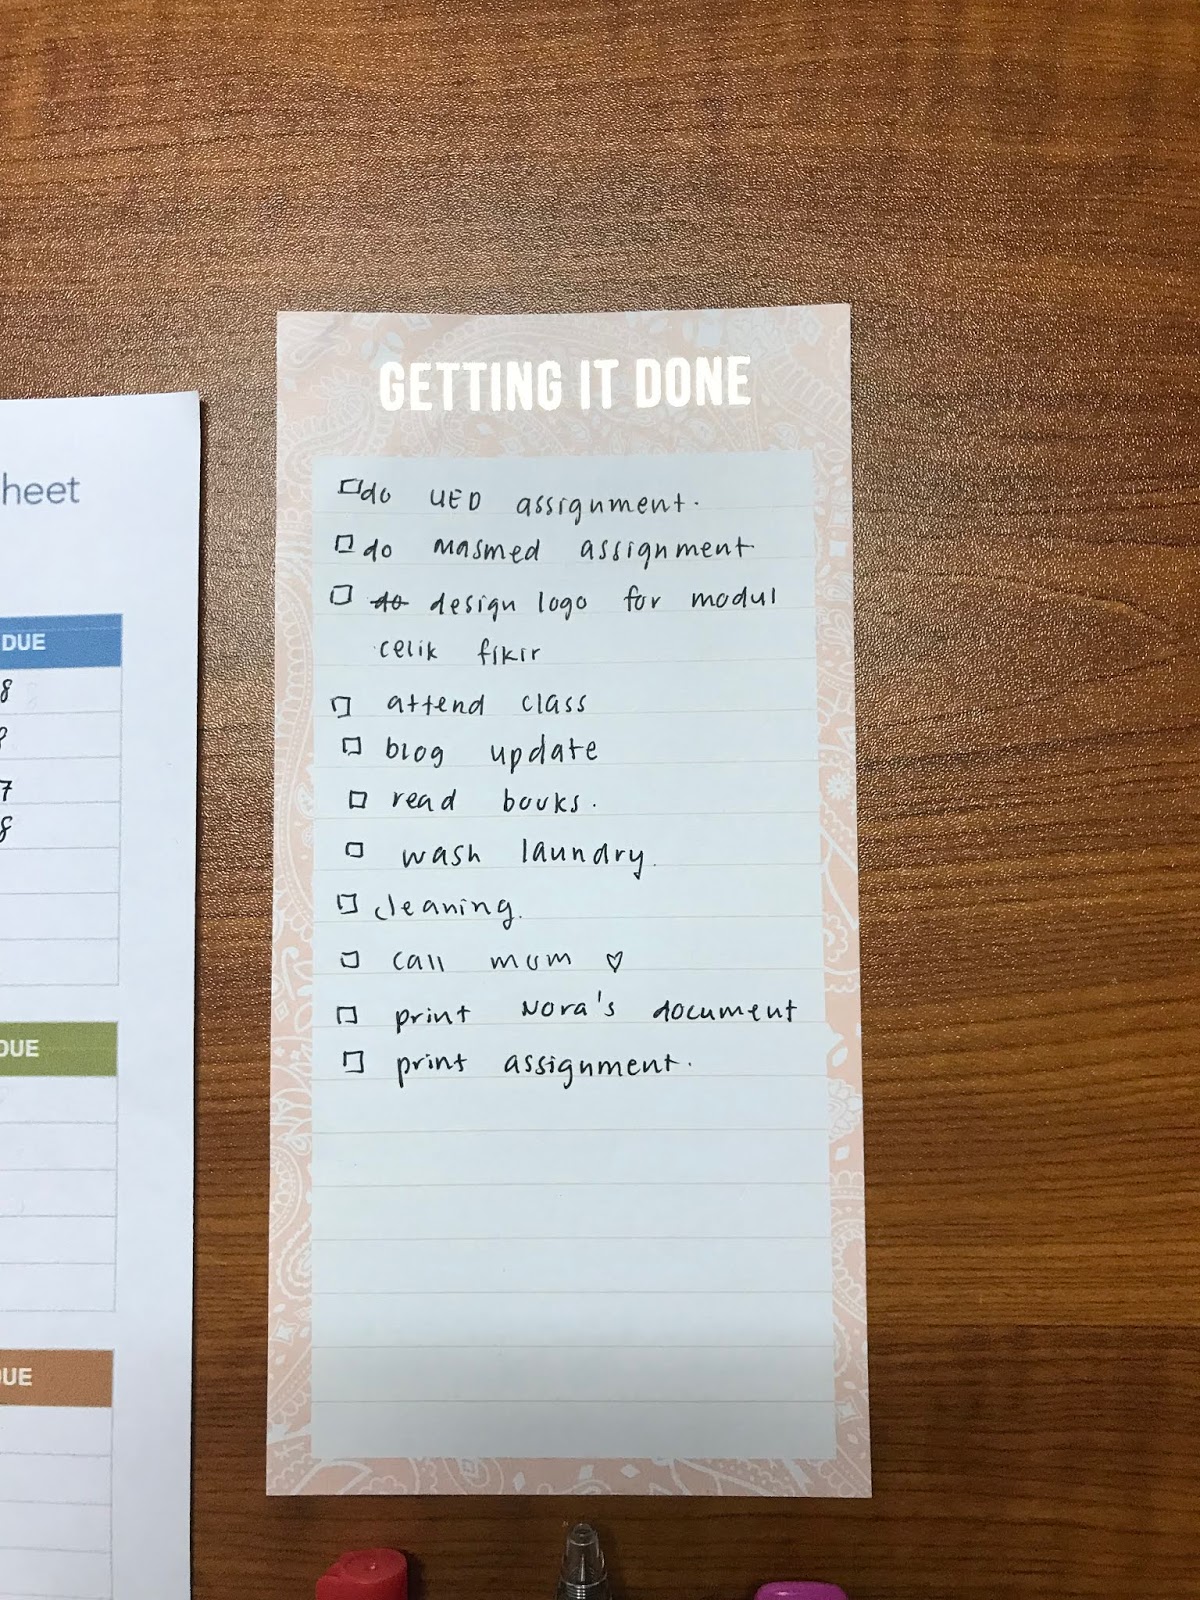 GETTING IT DONE
do UED assignment.
do Masmed assignment
do design logo for modul
celik fikir
attend class
blog update
read books.
wash laundry.
cleaning.
call mum ♡
print Nora's document
print assignment.
heet
DUE
8
8
7
8
DUE
DUE